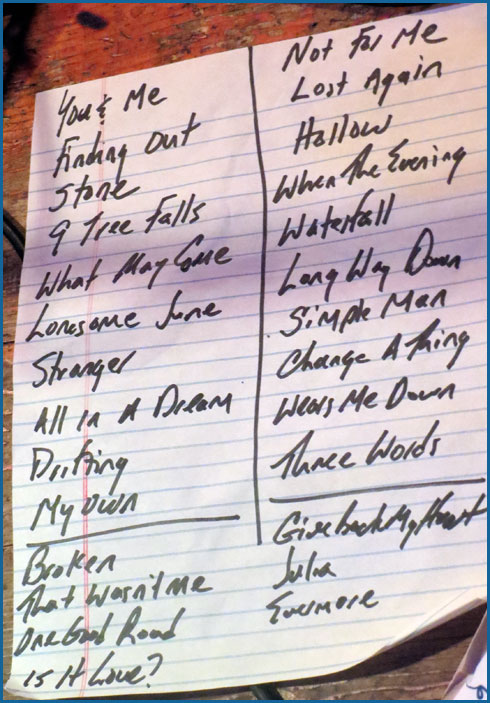 You & Me
Finding Out
Stone
A Tree Falls
What May Come
Lonesome June
Stranger
All In A Dream
Drifting
My Own
Broken
That Wasn't me
One Good Road
Is It Love?
Not For Me
Lost Again
Hallow
When The Evening
Waterfall
Long Way Down
Simple Man
Change A Thing
Wears Me Down
Three Words
Give Back My Heart
Julia
Evermore